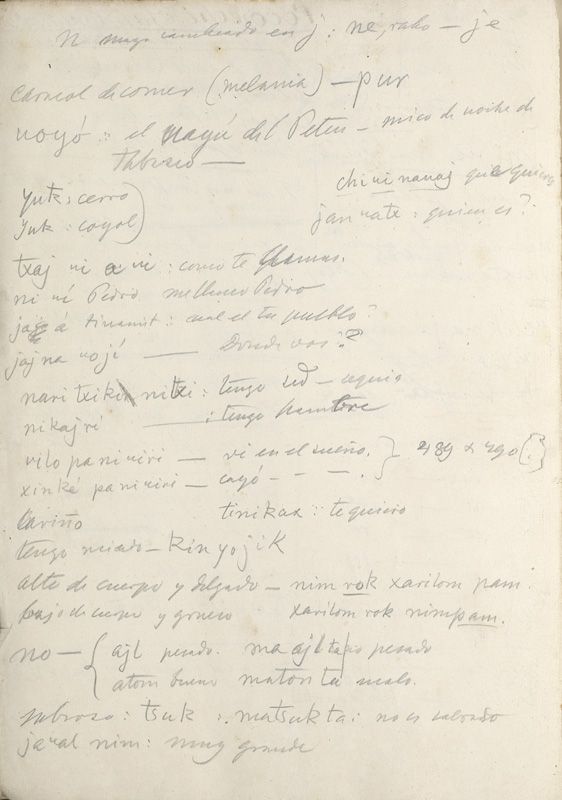 N muy cambiado en j : ne, rabo — je
Caracol de comer (melania) — pur
uoyó : el uayú del Peten — mico de noche de
Tabasco —
yuk : cerro
yuk : coyol
chi ui nauaj que quieres
jan uatx : quien es ?
txaj ui a ui : como te llamas.
ni ui Pedro me llamo Pedro
á tinamit : cual es tu pueblo ?
jaj na uojé — Donde vas ?
nari txikin nitxi : tengo sed —
nikajri — : tengo hambre
rilo paniuiri — vi en el sueño. } 489 & 490 (?)
xinké paniuiri — cayó - - - .
Cariño tinikax : te quiero
tengo miedo — kinyojik
alto de cuerpo y delgado — nim rok xarilom pam.
bajo de cuerpo y grueso xarilom rok nimpam.
no — { ajl pesado. ma ajl ta no pesado
atom bueno matom ta malo.
sabroso : tsuk : matsukta : no es sabroso
jaual nim : muy grande